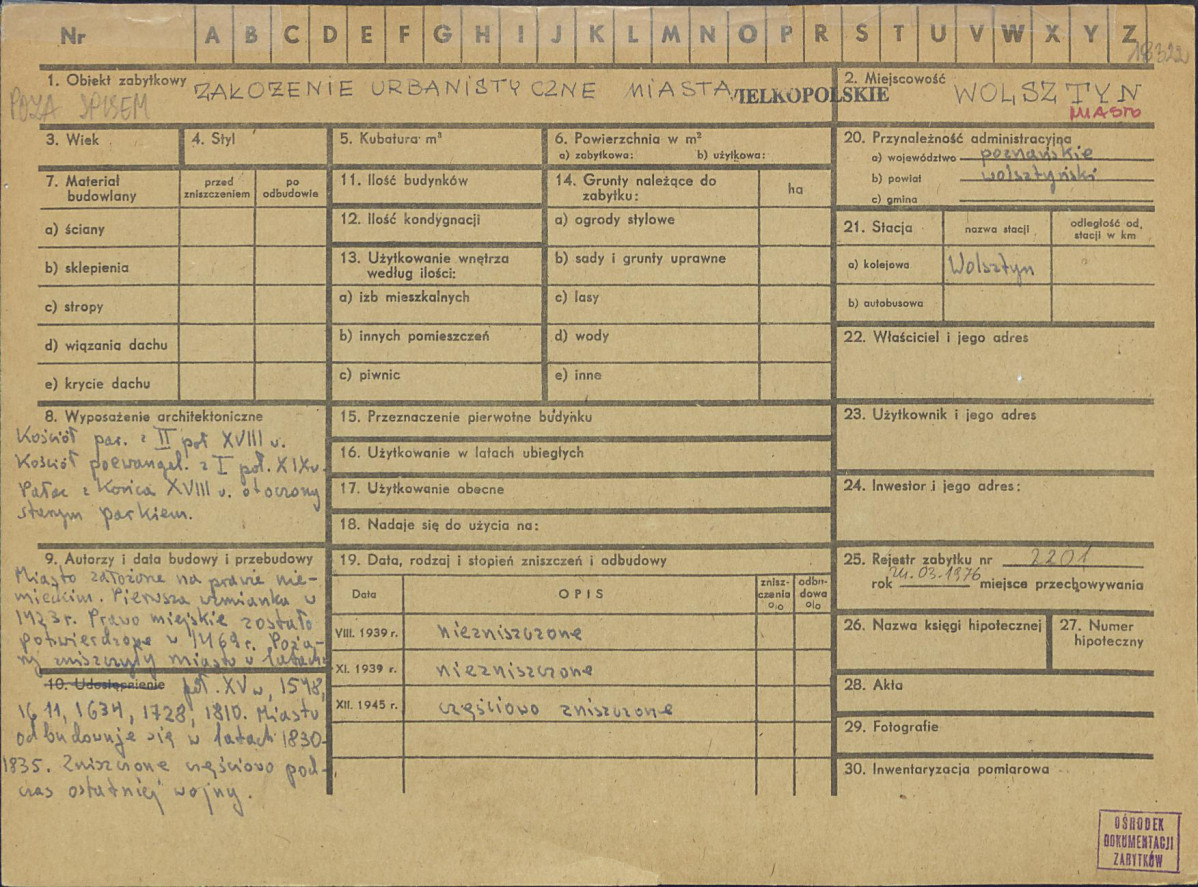 Nr A B C D E F G H I J K L M N O P R S T U V W X Y Z
18322
1. Obiekt zabytkowy ZAŁOŻENIE URBANISTYCZNE MIASTA
POZA SPISEM
WIELKOPOLSKIE
2. Miejscowość WOLSZTYN
MIASTO
3. Wiek
4. Styl
5. Kubatura m³
6. Powierzchnia w m²
a) zabytkowa: b) użytkowa:
7. Materiał budowlany
przed zniszczeniem
po odbudowie
a) ściany
b) sklepienia
c) stropy
d) wiązania dachu
e) krycie dachu
11. Ilość budynków
12. Ilość kondygnacji
13. Użytkowanie wnętrza
według ilości:
a) izb mieszkalnych
b) innych pomieszczeń
c) piwnic
14. Grunty należące do
zabytku:
ha
a) ogrody stylowe
b) sady i grunty uprawne
c) lasy
d) wody
e) inne
8. Wyposażenie architektoniczne
Kościół par. z II poł XVIII w.
Kościół poewangel. z I poł. XIX w.
Pałac z końca XVIII w. otoczony
starym parkiem.
9. Autorzy i data budowy i przebudowy
Miasto założone na prawie nie-
mieckim. Pierwsza wzmianka w
1423 r. Prawo miejskie zostało
potwierdzone w 1469 r. Poża-
ry zniszczyły miasto w latach:
10. Udostępnienie
poł. XV w, 1578,
1611, 1634, 1728, 1810. Miasto
odbudowuje się w latach 1830-
1835. Zniszczone częściowo pod-
czas ostatniej wojny.
15. Przeznaczenie pierwotne budynku
16. Użytkowanie w latach ubiegłych
17. Użytkowanie obecne
18. Nadaje się do użycia na:
19. Data, rodzaj i stopień zniszczeń i odbudowy
Data
OPIS
znisz-
czenia
%
odbu-
dowa
%
VIII. 1939 r. niezniszczone
XI. 1939 r. niezniszczone
XII. 1945 r. częściowo zniszczone
20. Przynależność administracyjna
a) województwo poznańskie
b) powiat wolsztyński
c) gmina
21. Stacja
nazwa stacji
odległość od,
stacji w km
a) kolejowa Wolsztyn
b) autobusowa
22. Właściciel i jego adres
23. Użytkownik i jego adres
24. Inwestor i jego adres:
25. Rejestr zabytku nr 2201
rok 24.03.1976 miejsce przechowywania
26. Nazwa księgi hipotecznej
27. Numer
hipoteczny
28. Akta
29. Fotografie
30. Inwentaryzacja pomiarowa
OŚRODEK
DOKUMENTACJI
ZABYTKÓW